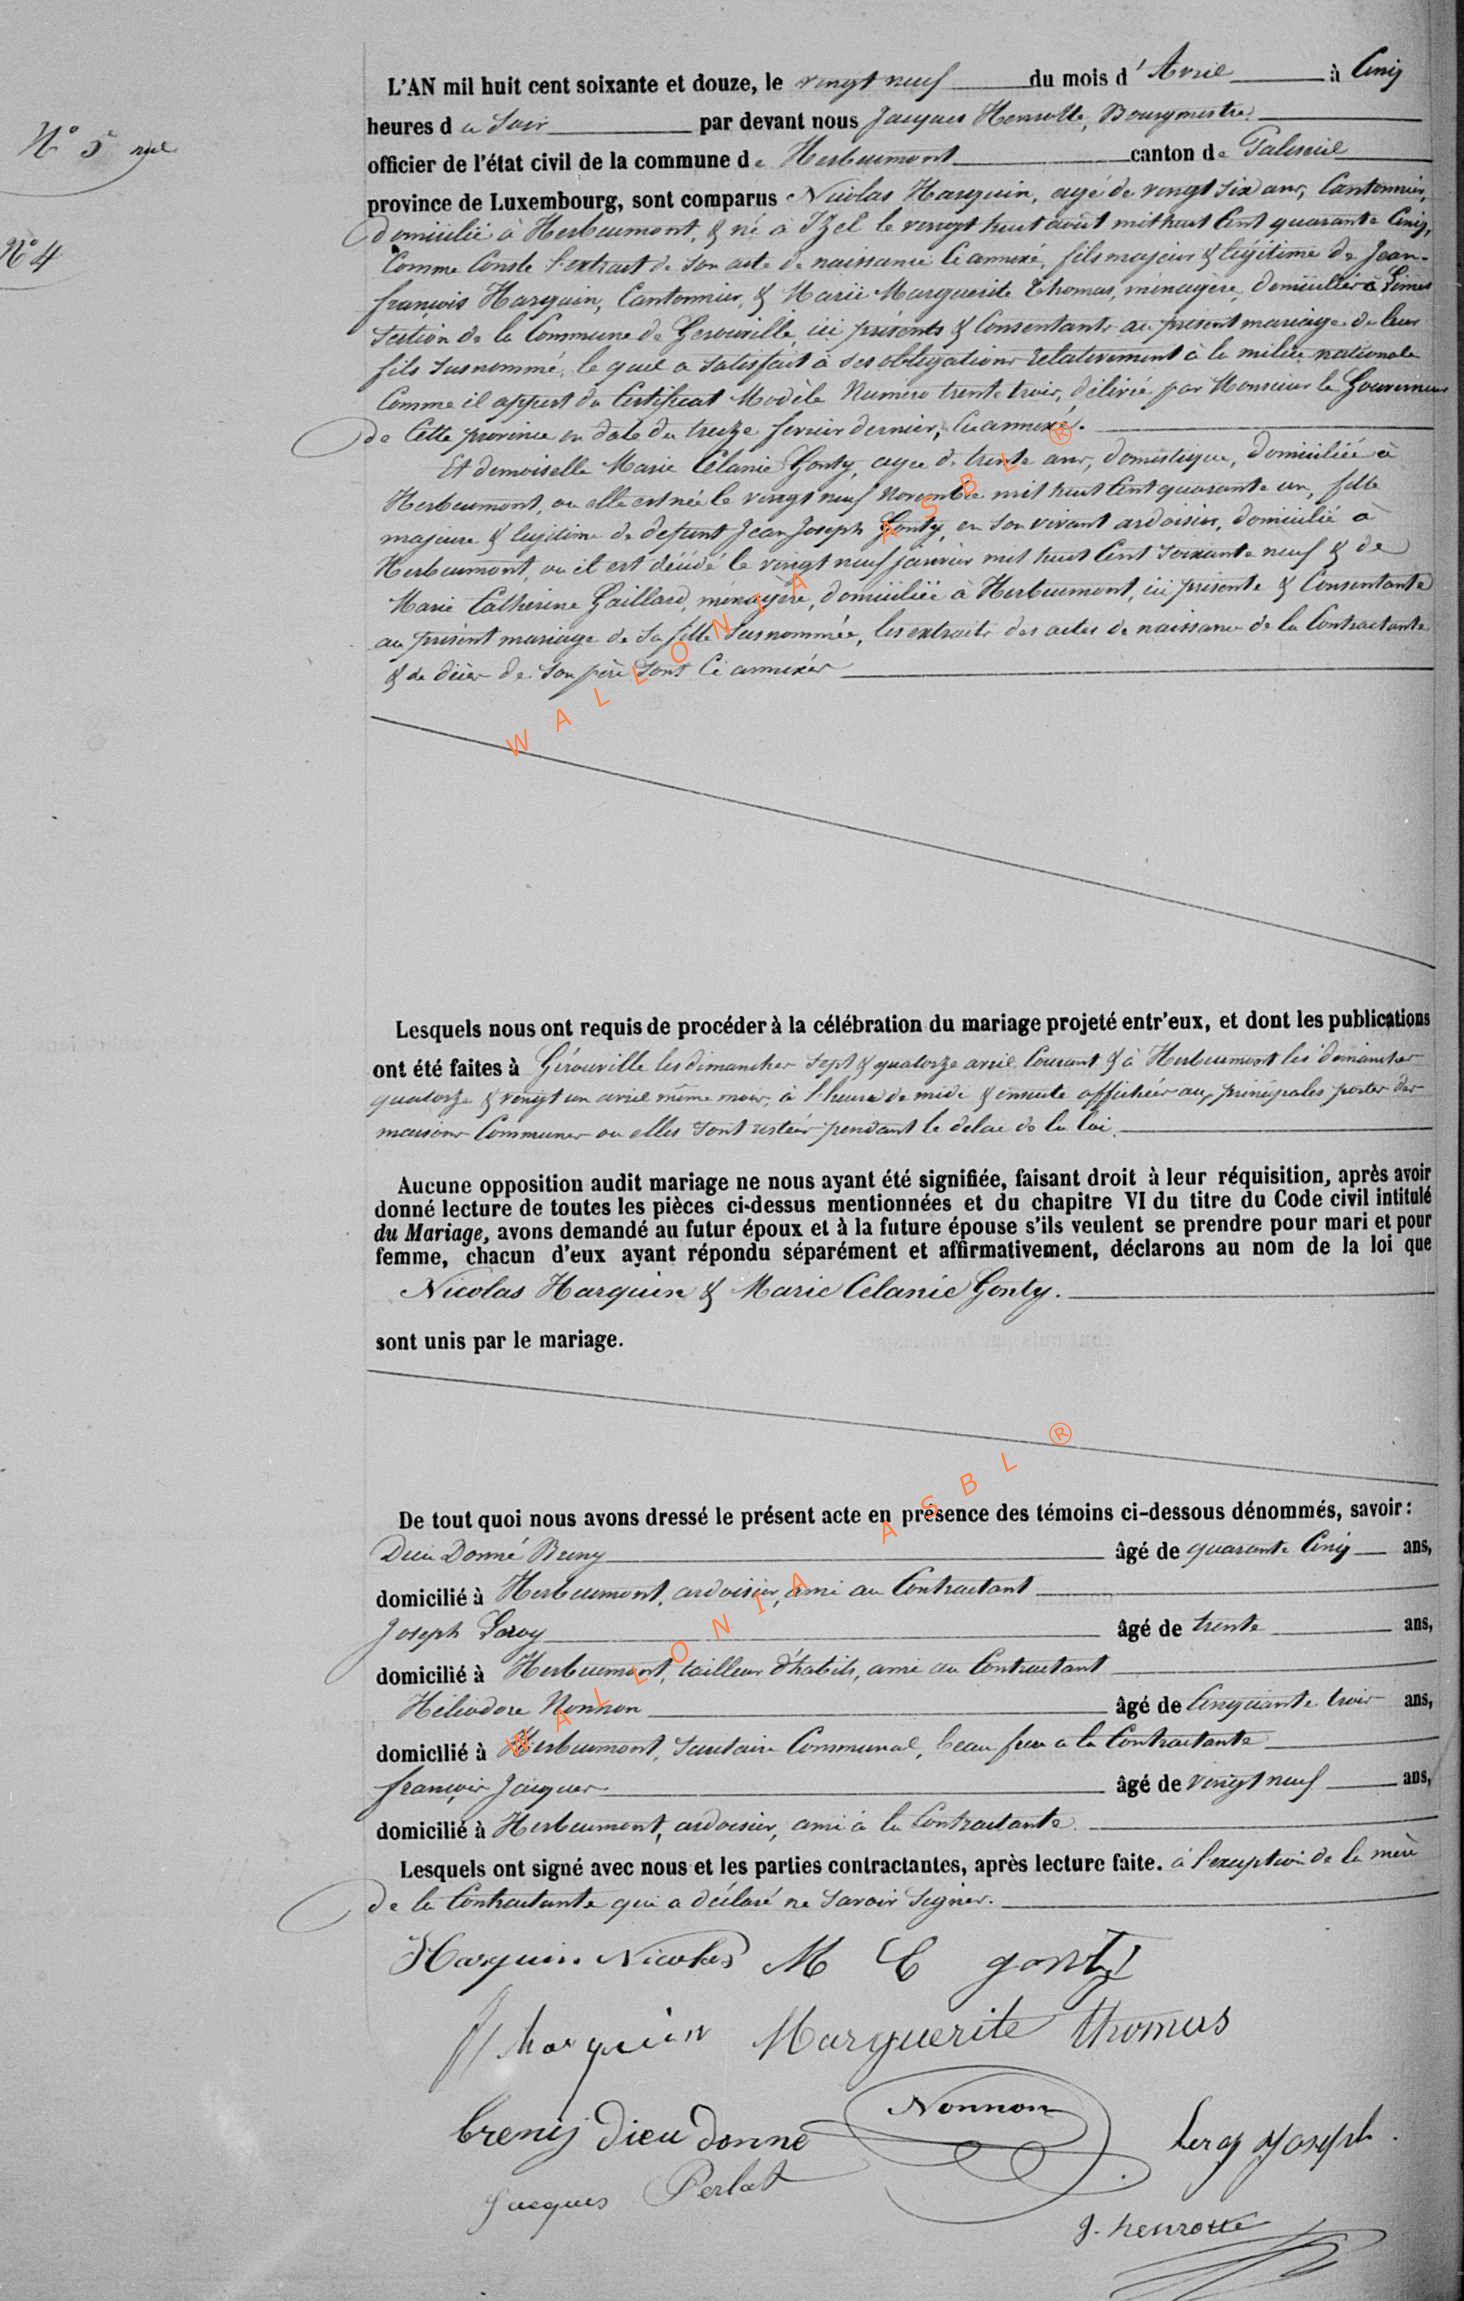 L'AN mil huit cent soixante et douze, le vingt neuf du mois d' Avril à Cinq
N° 5 heures du Soir par devant nous Jacques Henrotte, Bourgmestre
officier de l'état civil de la commune de Herbeumont canton de Paliseul
province de Luxembourg, sont comparus Nicolas Harquin, agé de vingt six ans, Cantonnier,
N° 4 domicilié à Herbeumont, & né à Izel le vingt huit août mil huit Cent quarante Cinq,
Comme Conste l'extrait de son acte de naissance Ci annexé, fils majeur & légitime de Jean-
françois Harquin, Cantonnier, & Marie Marguerite Thomas, ménagère, domiciliés à Limes
section de la Commune de Gerouville, ici présents & Consentants au présent mariage de leur
fils susnommé, le quel a satisfait à ses obligations relativement à la milice nationale
Comme il appert du Certificat Modèle Numéro trente trois, délivré par Monsieur le Gouverneur
de Cette province en date du treize fevrier dernier, Ci annexé.
Et demoiselle Marie Celanie Gonty, agée de trente ans, domestique, domiciliée à
Herbeumont, ou elle est née le vingt neuf Novembre mil huit Cent quarante un, fille
majeure & légitime de defunt Jean Joseph Gonty, en son vivant ardoisier, domicilié à
Herbeumont, ou il est décédé le vingt neuf janvier mil huit Cent soixante neuf & de
Marie Catherine Gaillard, ménagère, domiciliée à Herbeumont, ici présente & Consentante
au présent mariage de sa fille susnommée, les extraits des actes de naissance de la Contractante
& de décès de son père sont Ci annexés
WALLONIA ASBL ®
Lesquels nous ont requis de procéder à la célébration du mariage projeté entr'eux, et dont les publications
ont été faites à Gérouville les dimanches sept & quatorze avril Courant & à Herbeumont les dimanches
quatorze & vingt un avril même mois, à l'heure de midi & ensuite affichées aux principales portes des
maisons Communes ou elles sont restées pendant le delai de la loi.
Aucune opposition audit mariage ne nous ayant été signifiée, faisant droit à leur réquisition, après avoir
donné lecture de toutes les pièces ci-dessus mentionnées et du chapitre VI du titre du Code civil intitulé
du Mariage, avons demandé au futur époux et à la future épouse s'ils veulent se prendre pour mari et pour
femme, chacun d'eux ayant répondu séparément et affirmativement, déclarons au nom de la loi que
Nicolas Harquin & Marie Celanie Gonty.
sont unis par le mariage.
De tout quoi nous avons dressé le présent acte en présence des témoins ci-dessous dénommés, savoir :
Dieu Donné Breny âgé de quarante Cinq ans,
domicilié à Herbeumont, ardoisier, ami au Contractant
Joseph Leroy âgé de trente ans,
domicilié à Herbeumont, tailleur d'habits, ami au Contractant
Héliodore Nonnon âgé de Cinquante trois ans,
domicilié à Herbeumont, secrétaire Communal, beau frere à la Contractante
françois Jacques âgé de vingt neuf ans,
domicilié à Herbeumont, ardoisier, ami à la Contractante.
Lesquels ont signé avec nous et les parties contractantes, après lecture faite. à l'exception de la mère
de la Contractante qui a déclaré ne savoir signer.
WALLONIA ASBL ®
Harquin Nicolas M C gonty
harquin Marguerite thomas
breny dieu donné Nonnon leroy joseph.
Jacques
J. henrotte